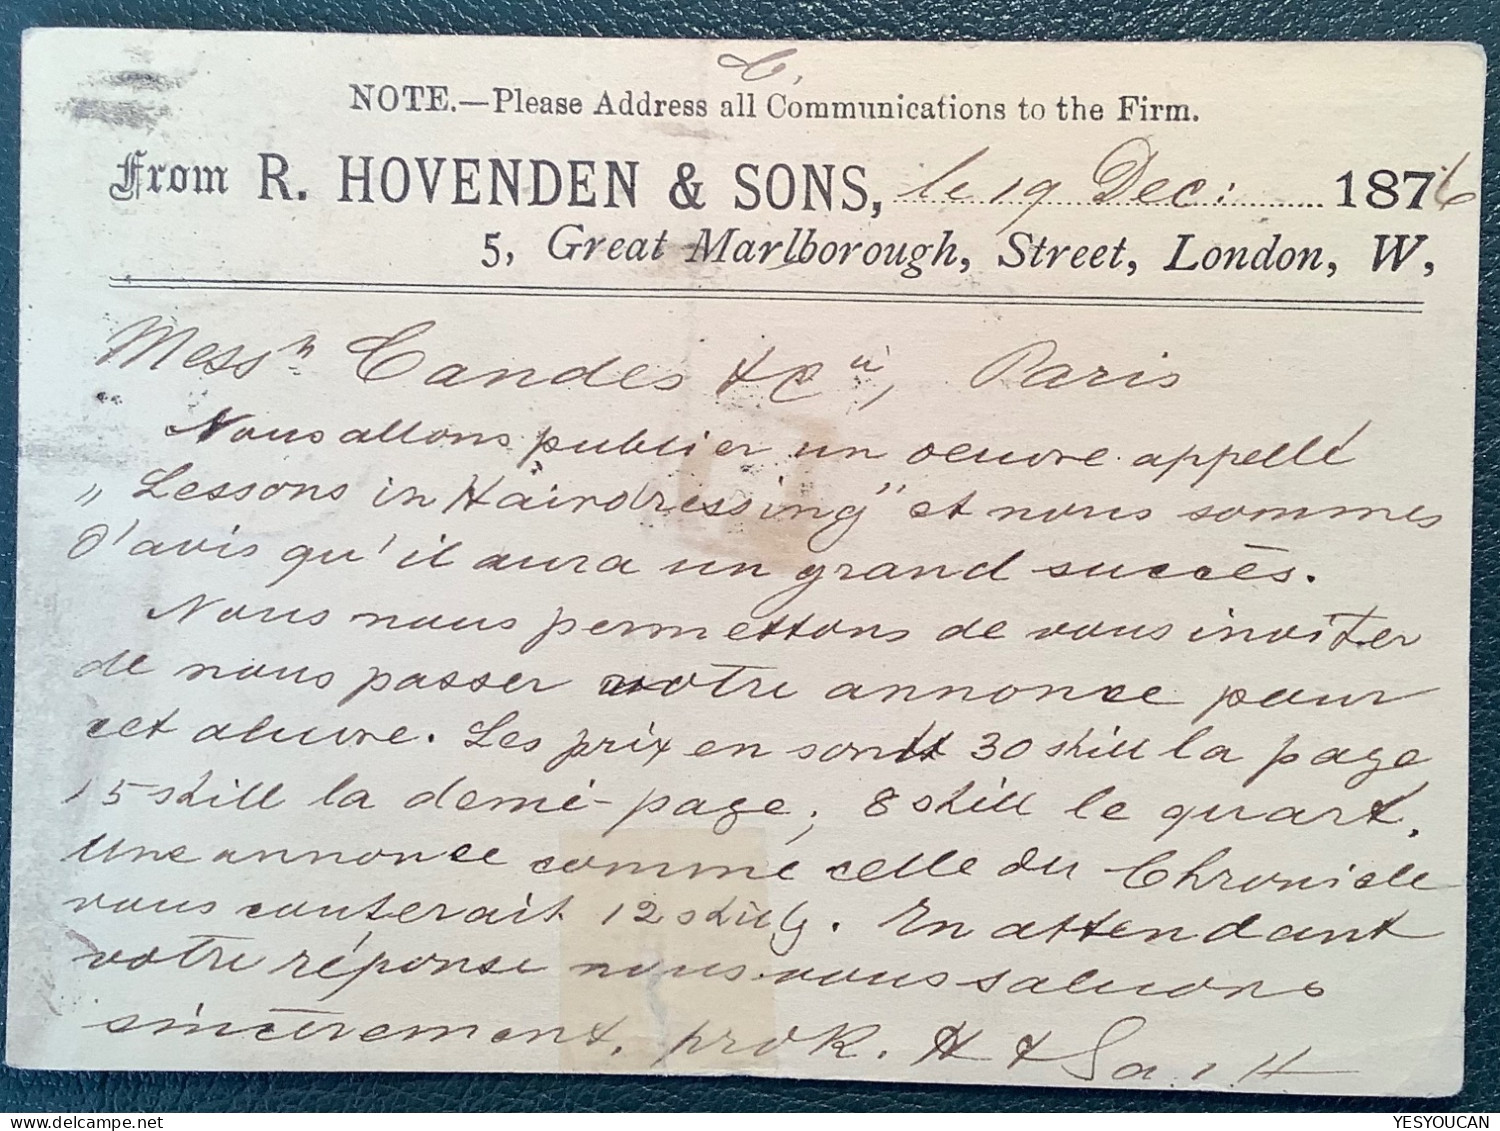 C.
NOTE.—Please Address all Communications to the Firm.
From R. HOVENDEN & SONS, le 19 Dec: 1876
5, Great Marlborough, Street, London, W,
Messrs Candes & Cie, Paris
Nous allons publier un oeuvre appellé
„Lessons in Hairdressing" et nous sommes
d'avis qu'il aura un grand succès.
Nous nous permettons de vous inviter
de nous passer votre annonce pour
cet oeuvre. Les prix en sont 30 shill la page
15 shill la demi-page, 8 shill le quart.
Une annonce comme celle du Chronicle
vous couterait 12 shillg. En attendant
votre réponse nous vous saluons
sincèrement, pro R. H & Son
YESYOUCAN